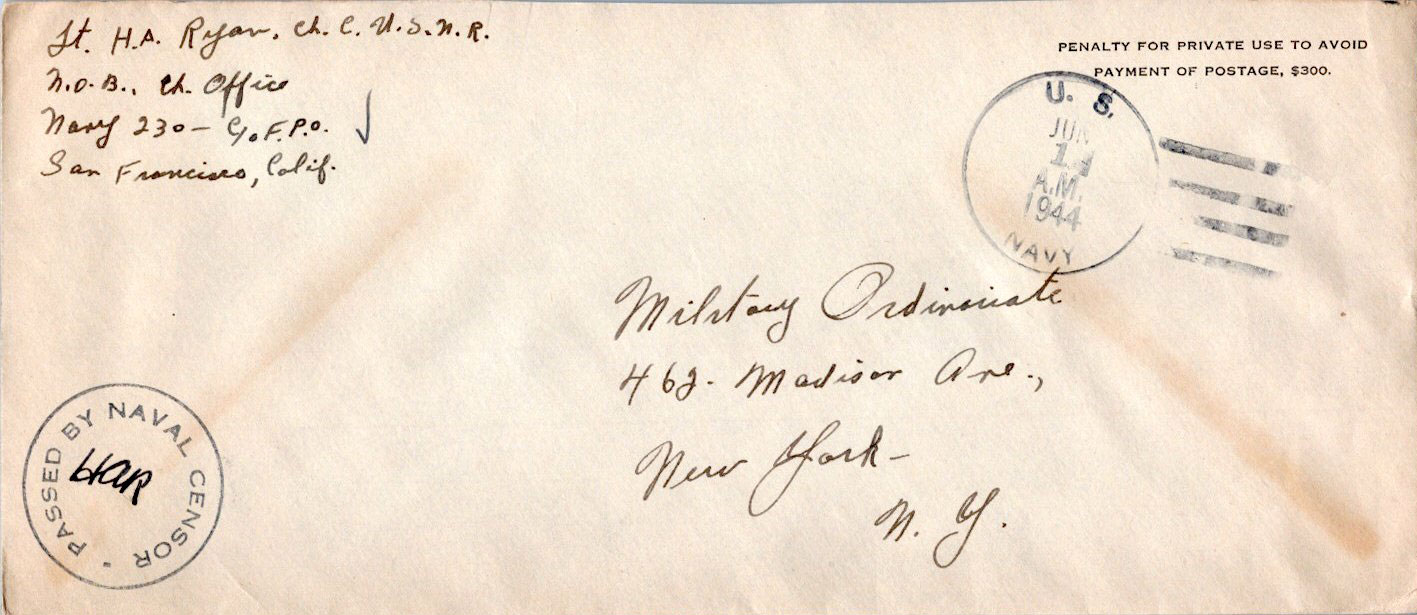 Lt. H.A. Ryan, Ch. C. U.S.N.R.
N.O.B., Ch. Office
Navy 230 - C/o. F.P.O.
San Francisco, Calif.
PENALTY FOR PRIVATE USE TO AVOID
PAYMENT OF POSTAGE, $300.
U. S.
JUN
14
A.M.
1944
NAVY
Military Ordinariate
462 - Madison Ave.,
New York -
N. Y.
PASSED BY NAVAL CENSOR
HAR